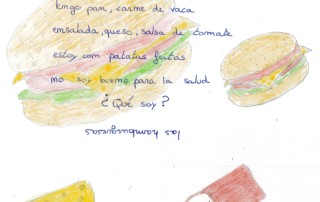 tengo pan, carne de vaca
ensalada, queso, salsa de tomate
estoy com patatas fritas
no soy bueno para la salud
¿Qué soy?
las hamburguesas